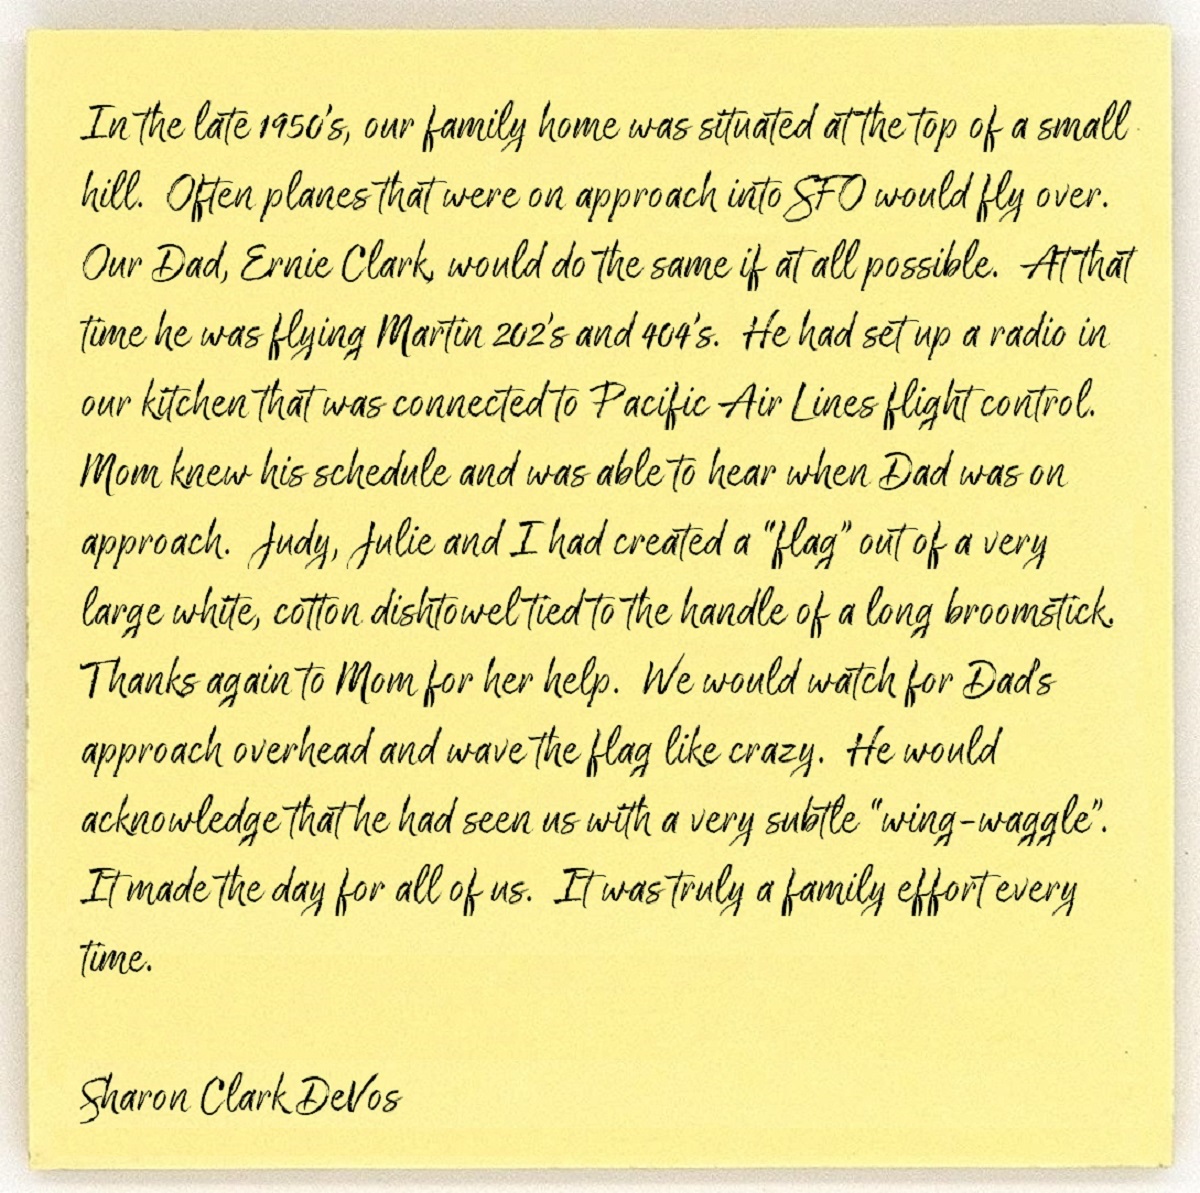 In the late 1950's, our family home was situated at the top of a small
hill. Often planes that were on approach into SFO would fly over.
Our Dad, Ernie Clark, would do the same if at all possible. At that
time he was flying Martin 202's and 404's. He had set up a radio in
our kitchen that was connected to Pacific Air Lines flight control.
Mom knew his schedule and was able to hear when Dad was on
approach. Judy, Julie and I had created a “flag” out of a very
large white, cotton dishtowel tied to the handle of a long broomstick.
Thanks again to Mom for her help. We would watch for Dad's
approach overhead and wave the flag like crazy. He would
acknowledge that he had seen us with a very subtle “wing-waggle”.
It made the day for all of us. It was truly a family effort every
time.
Sharon Clark DeVos